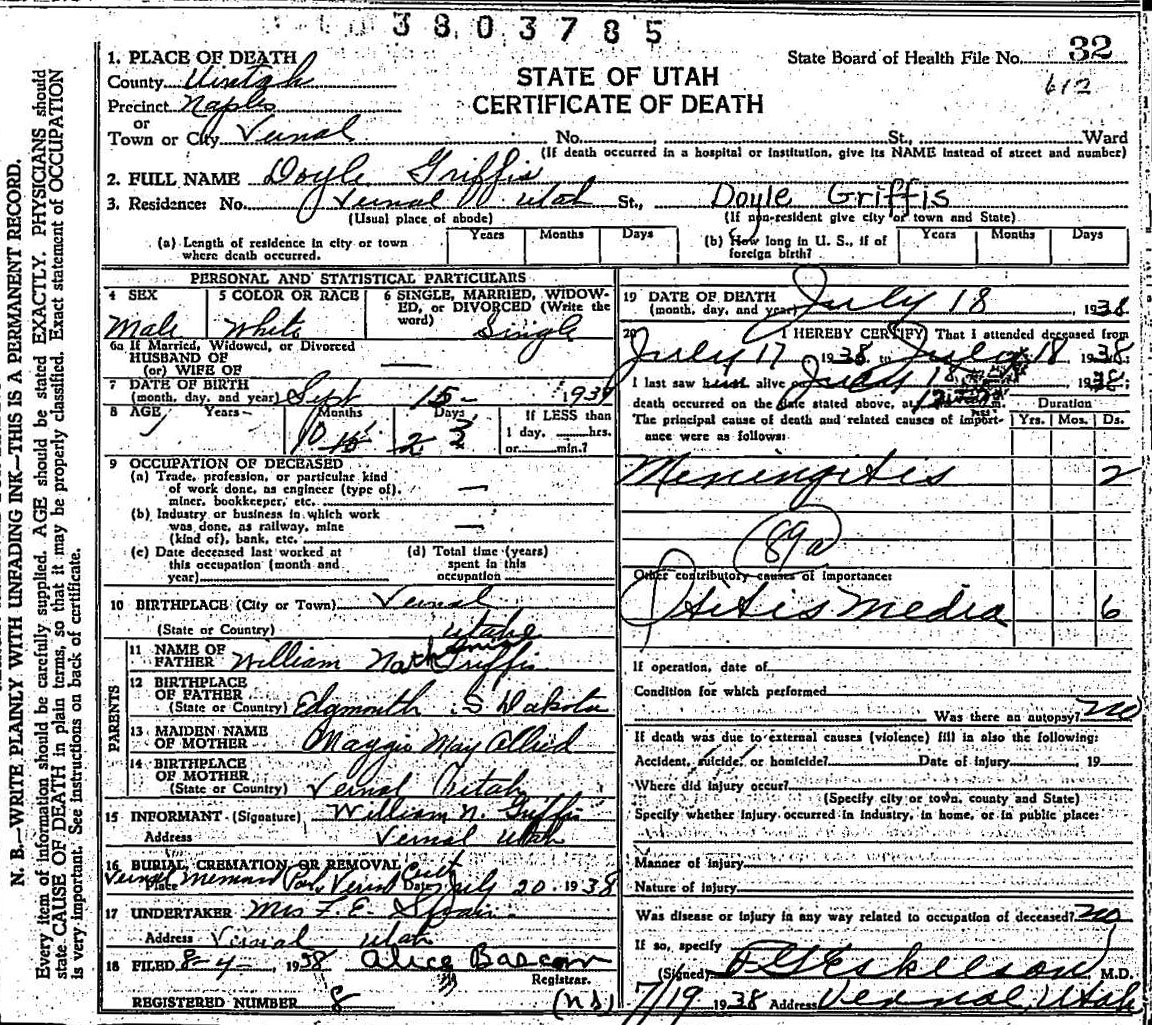 3803785
State Board of Health File No. 32
612
STATE OF UTAH
CERTIFICATE OF DEATH
1. PLACE OF DEATH
County Uintah
Precinct Naples
or
Town or City Vernal No. St., Ward
(If death occurred in a hospital or institution, give its NAME instead of street and number)
2. FULL NAME Doyle Griffis
3. Residence: No. Vernal Utah St., Doyle Griffis
(Usual place of abode) (If non-resident give city or town and State)
(a) Length of residence in city or town where death occurred. Years Months Days
(b) How long in U. S., if of foreign birth? Years Months Days
PERSONAL AND STATISTICAL PARTICULARS
4 SEX Male
5 COLOR OR RACE White
6 SINGLE, MARRIED, WIDOWED, or DIVORCED (Write the word) Single
6a If Married, Widowed, or Divorced
HUSBAND OF
(or) WIFE OF —
7 DATE OF BIRTH
(month, day, and year) Sept 15- 193
8 AGE Years - Months 10 Days 3 If LESS than
1 day, hrs.
or min.?
9 OCCUPATION OF DECEASED
(a) Trade, profession, or particular kind
of work done, as engineer (type of),
miner, bookkeeper, etc. —
(b) Industry or business in which work
was done, as railway, mine
(kind of), bank, etc. —
(c) Date deceased last worked at
this occupation (month and
year)
(d) Total time (years)
spent in this
occupation
10 BIRTHPLACE (City or Town) Vernal
(State or Country) Utah
PARENTS
11 NAME OF
FATHER William Griffis
12 BIRTHPLACE
OF FATHER
(State or Country) S Dakota
13 MAIDEN NAME
OF MOTHER Maggie May Allred
14 BIRTHPLACE
OF MOTHER
(State or Country) Vernal Utah
15 INFORMANT (Signature) William N. Griffis
Address Vernal Utah
16 BURIAL, CREMATION OR REMOVAL
Place Vernal Park Date July 20 1938
17 UNDERTAKER Mrs F. E.
Address Vernal Utah
18 FILED 8-4-, 1938 Alice Bascom
Registrar.
REGISTERED NUMBER 8 (ns)
19 DATE OF DEATH
(month, day, and year) July 18, 1938
20 I HEREBY CERTIFY That I attended deceased from
July 17 1938 to July 18 1938:
I last saw him alive on July 18, 1938;
death occurred on the date stated above, at m.
Duration
The principal cause of death and related causes of importance were as follows: Yrs. Mos. Ds.
Meningitis 2
89a
Other contributory causes of importance:
Otitis Media 6
If operation, date of
Condition for which performed
Was there an autopsy? no
If death was due to external causes (violence) fill in also the following:
Accident, suicide, or homicide? Date of injury 19
Where did injury occur?
(Specify city or town, county and State)
Specify whether injury occurred in industry, in home, or in public place:
Manner of injury
Nature of injury
Was disease or injury in any way related to occupation of deceased? no
If so, specify
(Signed) Eskelson M.D.
7/19 1938 Address Vernal, Utah
N. B.—WRITE PLAINLY WITH UNFADING INK—THIS IS A PERMANENT RECORD.
Every item of information should be carefully supplied. AGE should be stated EXACTLY. PHYSICIANS should
state CAUSE OF DEATH in plain terms, so that it may be properly classified. Exact statement of OCCUPATION
is very important. See instructions on back of certificate.